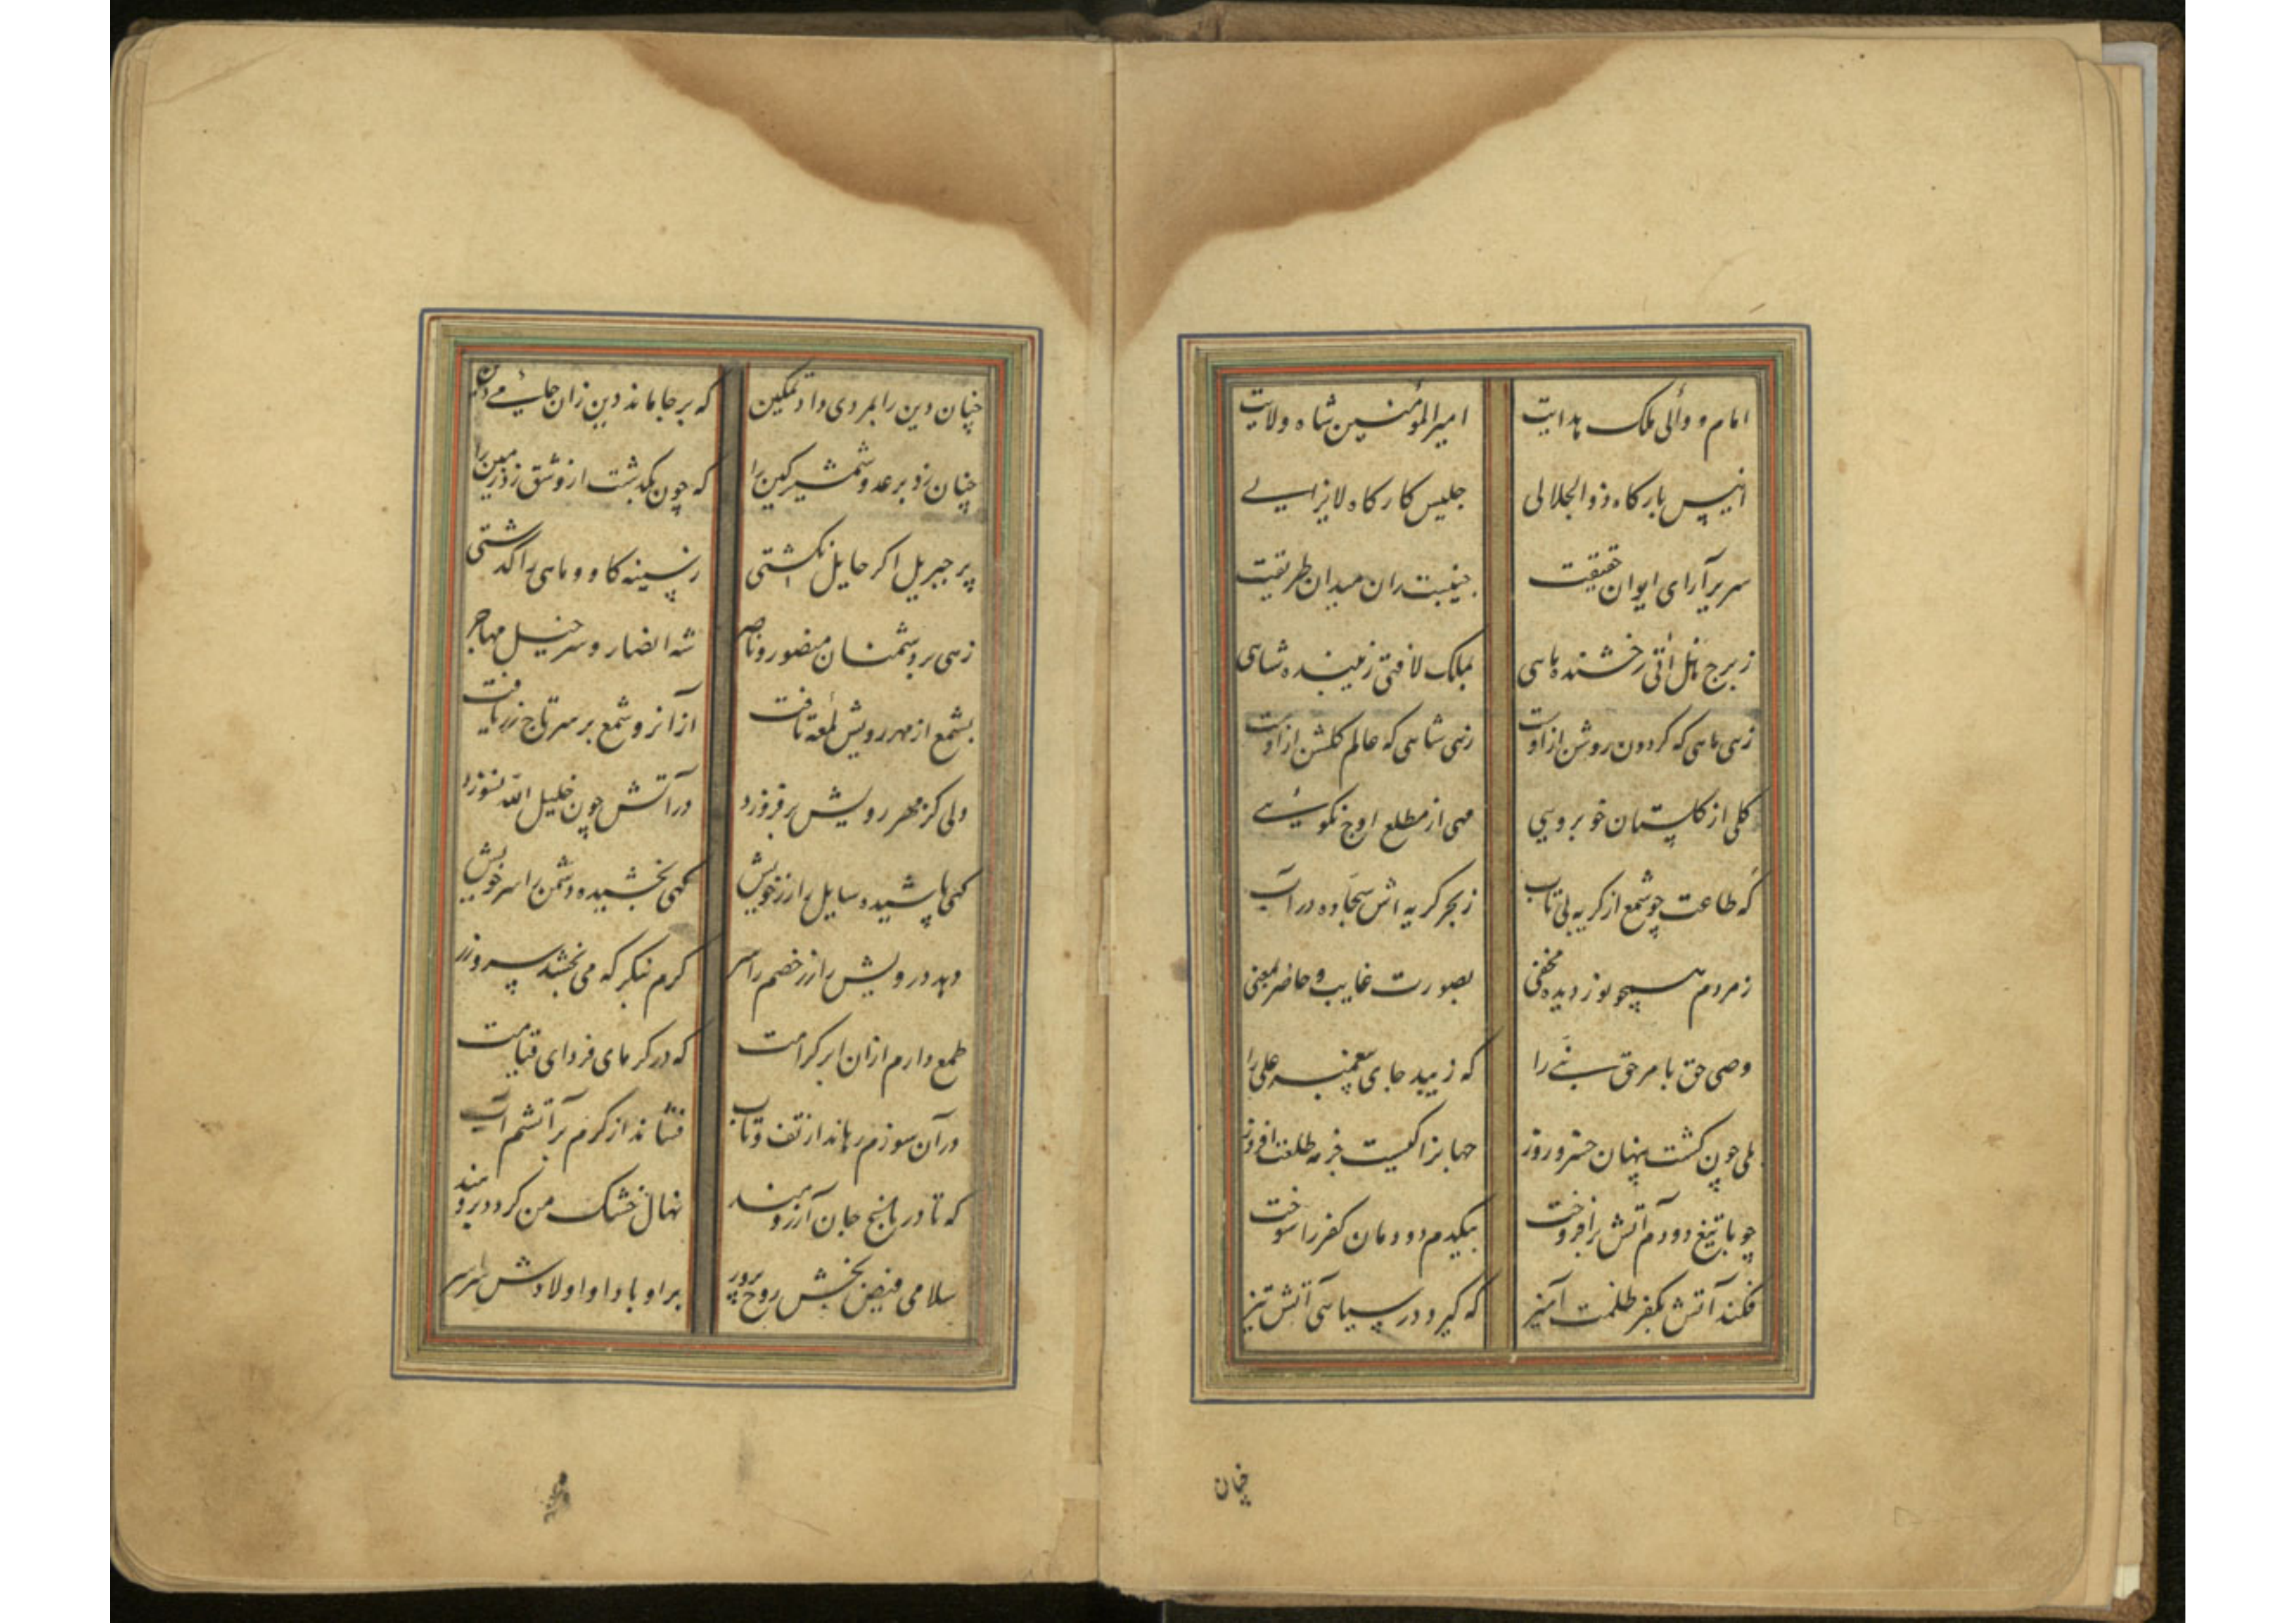 امام و والی ملک هدایت امیرالمؤمنین شاه ولایت
انیس بارکاه ذوالجلالی جلیس کارکاه لایزالی
سریرآرای ایوان حقیقت جنیبت ران میدان طریقت
زبرج هل اتی رخشنده ماهی بملک لافتی زیبنده شاهی
زهی ماهی که کردون روشن ازاوست زهی شاهی که عالم کلشن ازاوست
کلی از کلستان خوبرویی مهی از مطلع اوج نکوئی
که طاعت چو شمع از کریه بی تاب زبحر کریه اش سجاده در آب
زمردم همچو نور دیده مخفی بصورت غایب و حاضر بمعنی
وصی حق بامر حق نبی را که زیبد جای پیغمبر علی را
بلی چون کشت پنهان خسرو روز جهانرا کیست جز مه طلعت افروز
چو با تیغ دودم آتش برافروخت بیکدم دودمان کفر را سوخت
فکند آتش بکفر ظلمت آمیز که کیرد در سیاهی آتش تیز
چنان
چنان دین را بمردی داد تمکین که برجا ماند دین زان جای می
چنان زد بر عدو شمشیر کین را که چون بکذشت ازو شق زد زمین را
پر جبریل اکر حایل نکشتی زسینه کاو و ماهی را کذشتی
زهی بر دشمنان منصور و ناصر شه انصار و سرخیل مهاجر
بشمع از مهر رویش لمعه تافت از آنرو شمع بر سر تاج زر یافت
ولی کز مهر رویش برفروزد در آتش چون خلیل الله نسوزد
کهی پاشیده سایل را زر خویش کهی بخشیده دشمن را سر خویش
دهد درویش را زر خصم را سر کرم بنکر که می بخشد سر و زر
طمع دارم ازان ابر کرامت که در کرمای فردای قیامت
در آن سوزم رهاند از تف و تاب فشاند از کرم بر آتشم آب
که تا در باغ جان آرزومند نهال خشک من کردد برومند
سلامی فیض بخش روح پرور براو باد و اولادش سراسر